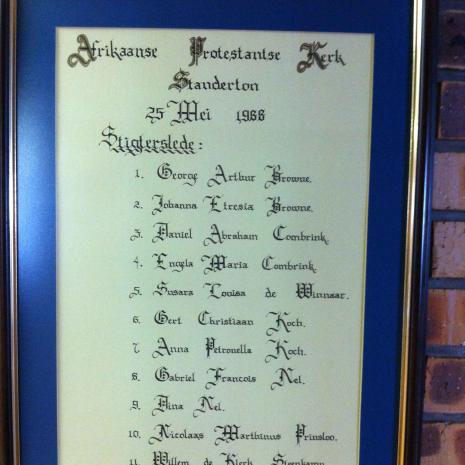 Afrikaanse Protestantse Kerk
Standerton
25 Mei 1988
Stigterslede:
1. George Arthur Browne.
2. Johanna Etresia Browne.
3. Daniel Abraham Combrink.
4. Engela Maria Combrink.
5. Susara Louisa de Winnaar.
6. Gert Christiaan Koch.
7. Anna Petronella Koch.
8. Gabriel Francois Nel.
9. Dina Nel.
10. Nicolaas Marthinus Prinsloo.
11. Willem de Klerk Steenkamp.